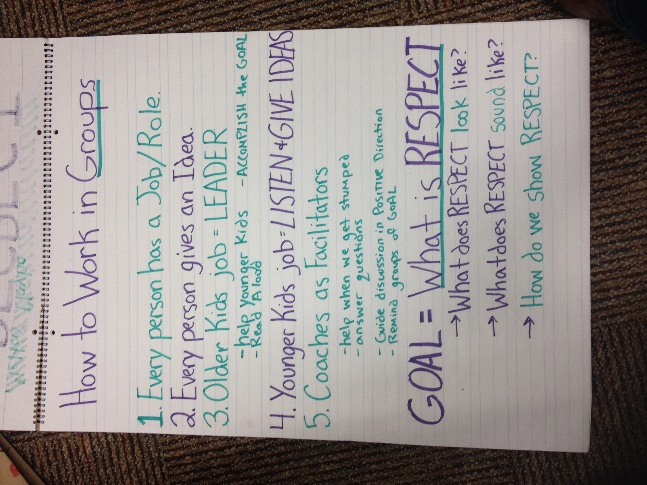 How to Work in Groups
1. Every person has a Job/Role.
2. Every person gives an Idea.
3. Older Kids job = LEADER
- help Younger Kids - ACCOMPLISH the GOAL
- Read Aloud
4. Younger Kids job = LISTEN + GIVE IDEAS
5. Coaches as Facilitators
- help when we get stumped
- answer questions
- Guide discussion in Positive Direction
- Remind groups of GOAL
GOAL = What is RESPECT
→ What does RESPECT look like?
→ What does RESPECT sound like?
→ How do we show RESPECT?